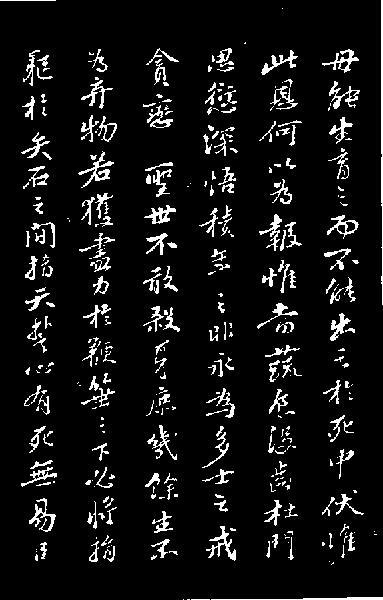 母能生育之而不能出之於死中伏惟
此恩何以為報惟當蔬食沒齒杜門
思愆深悟積年之非永為多士之戒
貪戀 聖世不敢殺身庶幾餘生不
為弃物若獲盡力於鞭箠之下必將捐
軀於矢石之間指天誓心有死無易臣